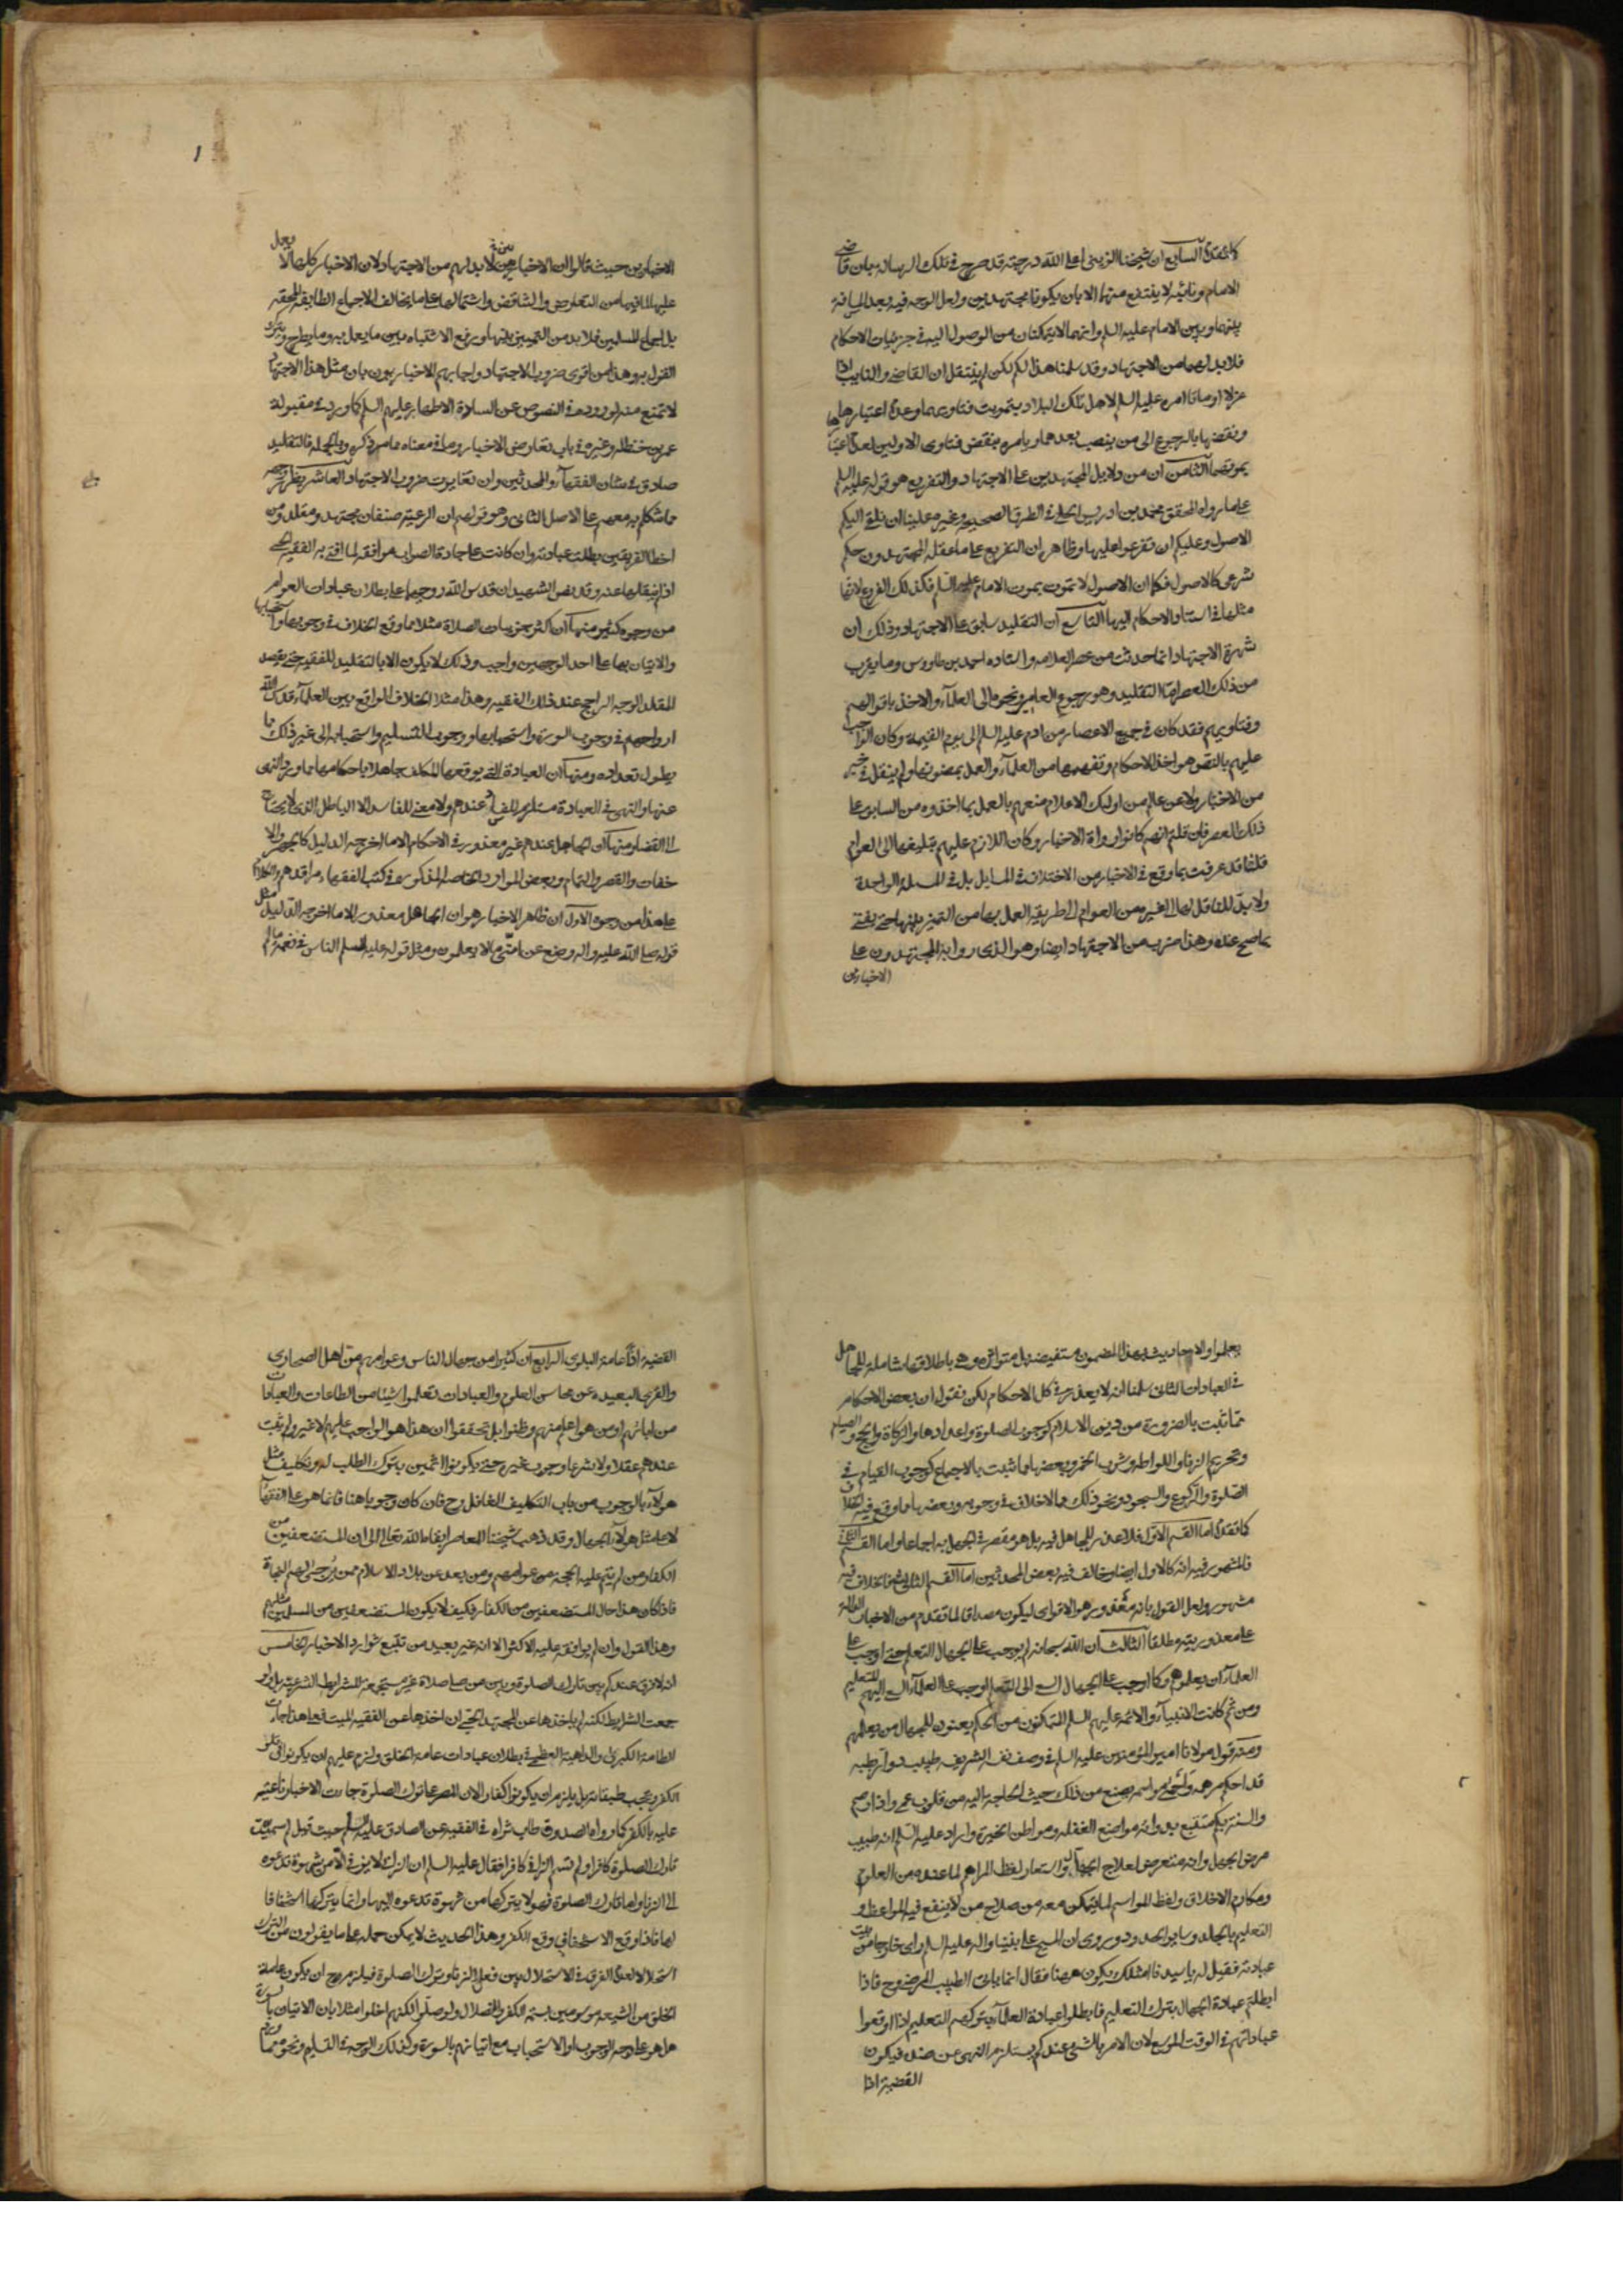 كما تقدم السابع ان شيخنا الزيني اعلى الله درجته قد صرح في تلك الرسالة بان قاضي
الامام ونائبه لا يفتقر منهما الا بان يكونا مجتهدين ولعل الوجه فيه بعد المسافة
بينهما وبين الامام عليه السلم وانهما لا يتمكنان من الوصول اليه في جزئيات الاحكام
فلا بد لهما من الاجتهاد وقد سلمنا هذا لكم لكن لم ينتقل ان القاضي والنايب اذا
عزلا او ماتا امره عليه السلم لاهل تلك البلاد بتمويت فتاويهما وعدم اعتبارها
ونقضها بالرجوع الى من ينصب بعدهما ويامره بنقض فتاوى الاولين لعدم اعتبارها
بموتهما الثامن ان من دلايل المجتهدين على الاجتهاد والتفريع هو قوله عليه السلم
على ما رواه المحقق محمد بن ادريس الحلي في الطرق الصحيحه وغيره علينا ان نلقي اليكم
الاصول وعليكم ان تفرعوا عليها وظاهر ان التفريع على ما عقله المجتهدون حكم
شرعي كالاصول فكما ان الاصول لا تموت بموت الامام عليه السلم فكذلك الفروع لانها
مثلها في استناد الاحكام اليها التاسع ان التقليد سابق على الاجتهاد وذلك ان
شهرة الاجتهاد انما حدثت من عصر العلامه واستاده احمد بن طاووس وما يقرب
من ذلك العصر اما التقليد وهو رجوع العامي ونحوه الى العلمآء والاخذ باقوالهم
وفتاويهم فقد كان في جميع الاعصار من ادم عليه السلم الى يوم القيمة وكان الواجب
عليهم بالنص هو اخذ الاحكام وتفهيمها من العلمآء والعمل بمضمونها ولم ينقل في خبر
من الاخبار ولا عن عالم من اوليك الاعلام منعهم بالعمل بما اخذوه من السابق على
ذلك العصر فان قلت انهم كانوا رواة الاخبار وكان اللازم عليهم تبليغها الى العوام
قلنا قد عرفت بما وقع في الاخبار من الاختلاف في المسايل بل في المسئلة الواحدة
ولا بد للناقل لها الى غيره من العوام الى طريقة العمل بها من التميز بينها حتى يفتي
بما صح عنده وهذا ضرب من الاجتهاد ايضا وهو الذي روا به المجتهدون على
الاخبارين
الاخبارين حيث قالوا ان الاخباريين لا بد لهم من الاجتهاد لان الاخبار كلها لا يعمل
عليها لما فيها من التعارض والتناقض واشتمالها على ما يخالف الاجماع الطايفه المحقه
بل اجماع المسلمين فلا بد من التمييز بينها ورفع الاشتباه بين ما يعمل به وما يطرح ويترك
القول به وهذا من اقوى ضروب الاجتهاد واجابهم الاخباريون بان مثل هذا الاجتهاد
لا تمنع منه لوروده في النصوص عن السادة الاطهار عليهم السلم كما ورد في مقبولة
عمر بن حنظله وغيره في باب تعارض الاخبار وما في معناه مما مر ذكره وبالجمله فالتقليد
صادق في شان الفقهآء والمحدثين وان تغايرت ضروب الاجتهاد العاشر يظهر وجهه
ما شكام به معهم على الاصل الثاني وهو قولهم ان الرعية صنفان مجتهد ومقلد ومن
اخطا الفريقين بطلت عبادته وان كانت على جادة الصواب موافقة لما افتى به الفقيه الحي
اذا لم ينقلها عنه وقد نص الشهيدان قدس الله روحهما على بطلان عبادات العوام
من وجوه كثيرة منها ان اكثر جزئيات الصلاة مثلا مما وقع الخلاف في وجوبها واستحبابها
والاتيان بها على احد الوجهين واجب وذلك لا يكون الا بالتقليد للفقيه حتى يقصد
المقلد الوجه الراجح عند ذلك الفقيه وهذا مثلا الخلاف الواقع بين العلمآء قدس الله
ارواحهم في وجوب السورة واستحبابها ووجوب التسليم واستحبابه الى غير ذلك مما
يطول تعداده ومنها ان العبادة التي يوقعها المكلف جاهلا باحكامها مما ورد النهي
عنها والنهي في العبادة مستلزم للفساد عندهم ولا معنى للفاسد الا الباطل الذي لا يحتاج
الى القضا ومنها ان الجاهل عندهم غير معذور في الاحكام الا ما اخرجه الدليل كالجهر والا
خفات والقصر والتمام وبعض الموارد الخاصة المذكورة في كتب الفقهاء مراقدهم والكلام
على هذا من وجوه الاول ان ظاهر الاخبار هو ان الجاهل معذور الا ما اخرجه الدليل مثل
قوله صلى الله عليه واله وضع عن امتي ما لا يعلمون ومثل قوله عليه السلم الناس في سعة ما لم
يعلموا والاحاديث بهذا المضمون مستفيضه بل متواترة وهي باطلاقها شاملة للجاهل
في العبادات الثاني سلمنا انه لا يعذر في كل الاحكام لكن نقول ان بعض الاحكام
مما ثبت بالضرورة من دين الاسلام كوجوب الصلوة واعدادها والزكاة والحج والصيام
وتحريم الزنا واللواط وشرب الخمر وبعضها مما ثبت بالاجماع كوجوب القيام في
الصلوة والركوع والسجود ونحو ذلك مما لا خلاف في وجوبه وبعضها مما وقع فيه الخلاف
كما تقدم اما القسم الاول فلا عذر للجاهل فيه بل هو مقصر في الجهل به اجماعا واما القسم الثاني
فالمشهور فيه انه كالاول ايضا وخالف فيه بعض المحدثين اما القسم الثالث فالخلاف فيه
مشهور ولعل القول بانه معذور هو الاقوى ليكون مصداقا لما تقدم من الاخبار الدالة
على معذوريته مطلقا الثالث ان الله سبحانه لم يوجب على الجهال التعلم حتى اوجب على
العلمآء ان يعلموهم وكما اوجب على الجهال السعي الى التعلم اوجب على العلمآء السعي اليهم للتعليم
ومن ثم كانت الانبيآء والائمه عليهم السلم المتمكنون من الحكم يبعثون للجهال من يعلمهم
ومنه قول مولانا امير المؤمنين عليه السلم في وصف نفسه الشريفه طبيب دوار بطبه
قد احكم مرهمه واحمى مواسمه يضع من ذلك حيث الحاجة اليه من قلوب عمي واذان صم
والسنة بكم متتبع بدوائه مواضع الغفله ومواطن الحيرة واراد عليه السلم انه طبيب
مرض الجهل وانه متعرض لعلاج الجهال واستعار لفظ المراهم لما عنده من العلوم
ومكارم الاخلاق ولفظ المواسم لما يتمكن معه من صلاح من لا ينفع فيه المواعظ و
التعليم بالجلد وساير الحدود وروي ان المسيح على نبينا واله عليه السلم راى خارجا من بيت
فقيل له يا سيدنا امثلك يكون ههنا فقال انما ياتي الطبيب المرضى وح فاذا
ابطلتم عبادة الجهال بترك التعليم فابطلوا عبادة العلمآء بتركهم التعليم اذا اوقعوا
عباداتهم في الوقت الموسع لان الامر بالشي عندكم يستلزم النهي عن ضده فيكون
القضية اذا
القضية اذا عامة البلوى الرابع ان كثيرا من جهال الناس وعوامهم من اهل الصحارى
والقرى البعيده عن محاسن العلوم والعبادات تعلموا شيئا من الطاعات والعبادات
من ابائهم او من هو اعلم منهم وظنوا بل تحققوا ان هذا هو الواجب عليهم لا غير ولم يثبت
عندهم عقلا ولا شرعا وجوب غيره حتى يكونوا اثمين بترك الطلب له وتكليف مثل
هولآء بالوجوب من باب التكليف الغافل وح فان كان وجوب هنا فانما هو على الفقهآء
لا على مثل هولآء الجهال وقد ذهب شيخنا المعاصر ابقاه الله تعالى الى ان المستضعفين من
الكفار ومن لم يتم عليه الحجة من عوامهم ومن بعد عن بلاد الاسلام ممن يرجى لهم النجاة
فاذا كان هذا حال المستضعفين من الكفار فكيف لا يكون المستضعفين من المسلمين مثلهم
وهذا القول وان لم يوافقه عليه الاكثر الا انه غير بعيد من تتبع شوارد الاخبار الخامس
انه لا فرق عندكم بين تارك الصلوة وبين من صلى صلاة غير مستجمعة للشرايط الشرعية بل ولو
جمعت الشرايط لكنه لم ياخذها عن المجتهد الحي ان اخذها عن الفقيه الميت فعلى هذا جاءت
الطامة الكبرى والداهية العظمى في بطلان عبادات عامة الخلق ولزم عليهم ان يكونوا في
الكفر وبحسب طبقاته بل يلزم ان يكونوا كفارا لان المصر على ترك الصلوة جاءت الاخبار ناعتة
عليه بالكفر كما رواه الصدوق طاب ثراه في الفقيه عن الصادق عليه السلم حيث قيل لم سميت
تارك الصلوة كافرا ولم تسم الزاني كافرا فقال عليه السلم ان الزاني لا يزني الا من شهوة تدعوه
الى الزنا واما تارك الصلوة فهو لا يتركها من شهوة تدعوه اليها وانما يتركها استخفافا
بها فاذا وقع الاستخفاف وقع الكفر وهذا الحديث لا يمكن حمله على ما يقولون من الترك
استحلالا لعدم الفرق في الاستحلال بين فعل الزنا وترك الصلوة فيلزم ح ان يكون عامة
الخلق من الشيعه موسومين بسمة الكفر والضلال ولو صلوا لكنهم اخلوا مثلا بان الاتيان بالسورة
هل هو على وجه الوجوب او الاستحباب مع اتيانهم بالسورة وكذلك الوجه في التسليم ونحوه مما